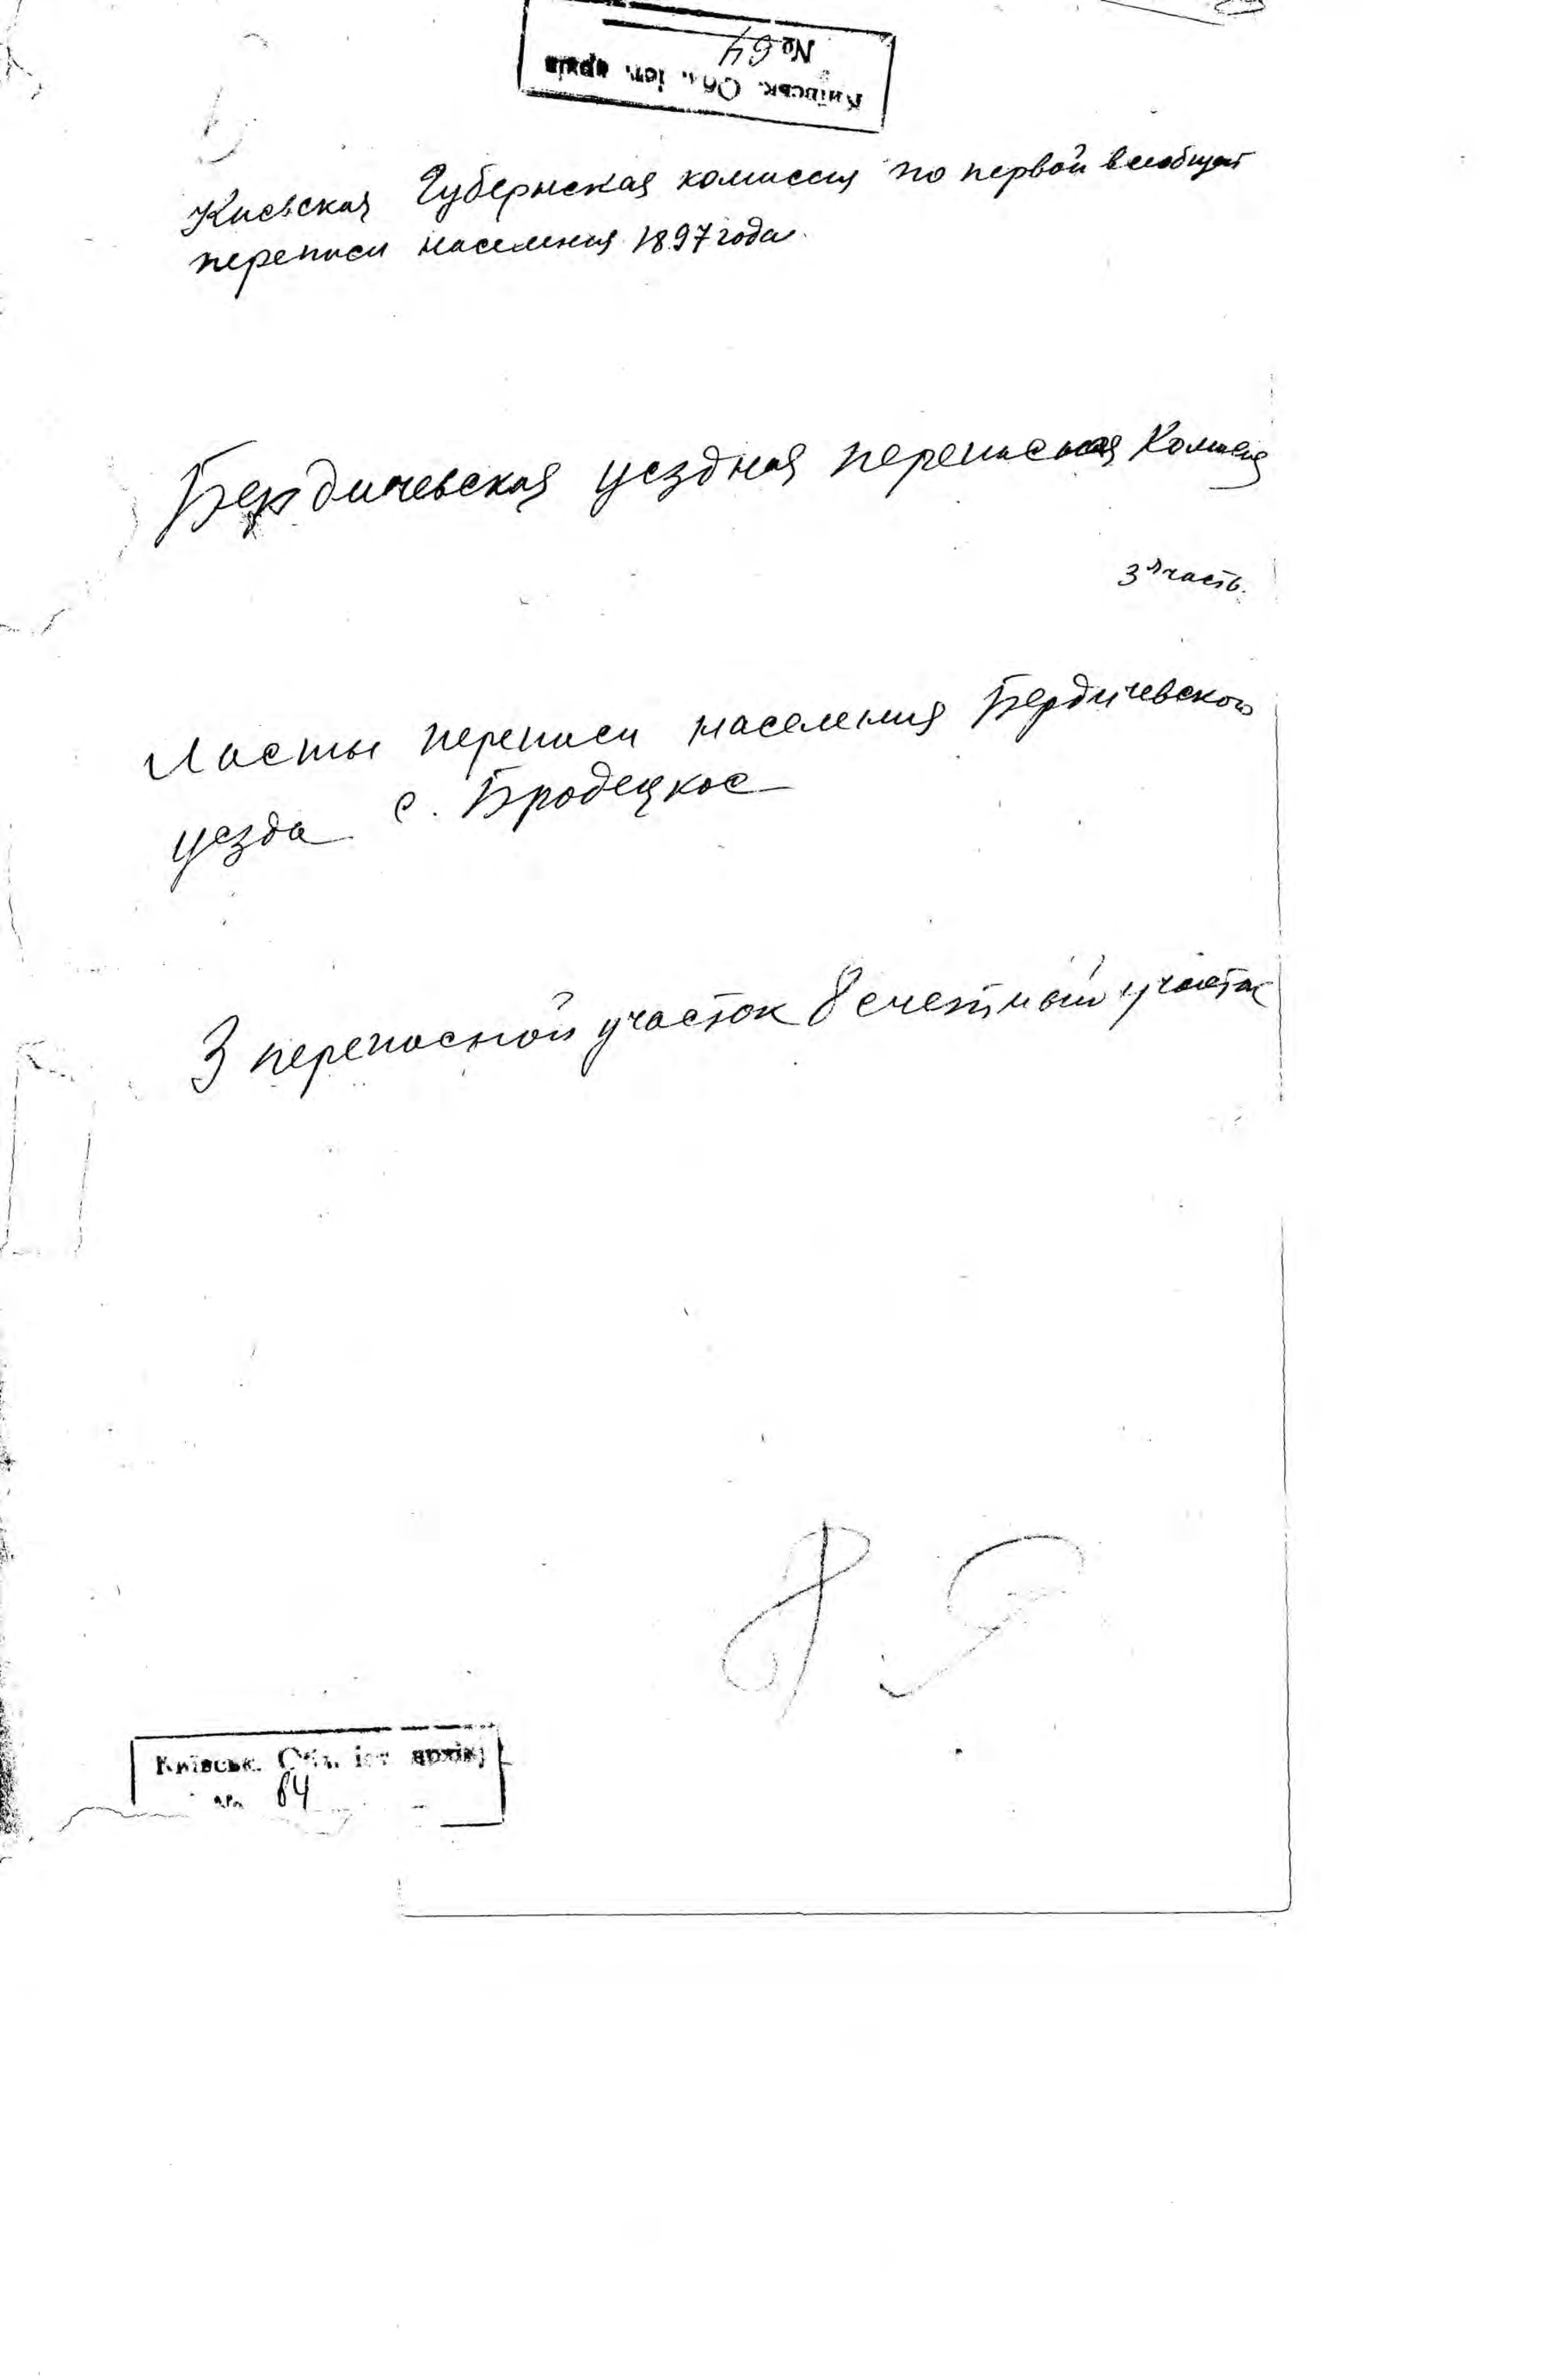 Київськ. Обл. іст. архів
№ 64
Киевская Губернская комиссия по первой всеобщей
переписи населения 1897 года.
Бердичевская уездная переписная Комисия
3я часть.
Листы переписи населения Бердичевского
уезда с. Бродецкое
3 переписной участок 8 счетный участок
8
Київськ. Обл. іст. архів
64